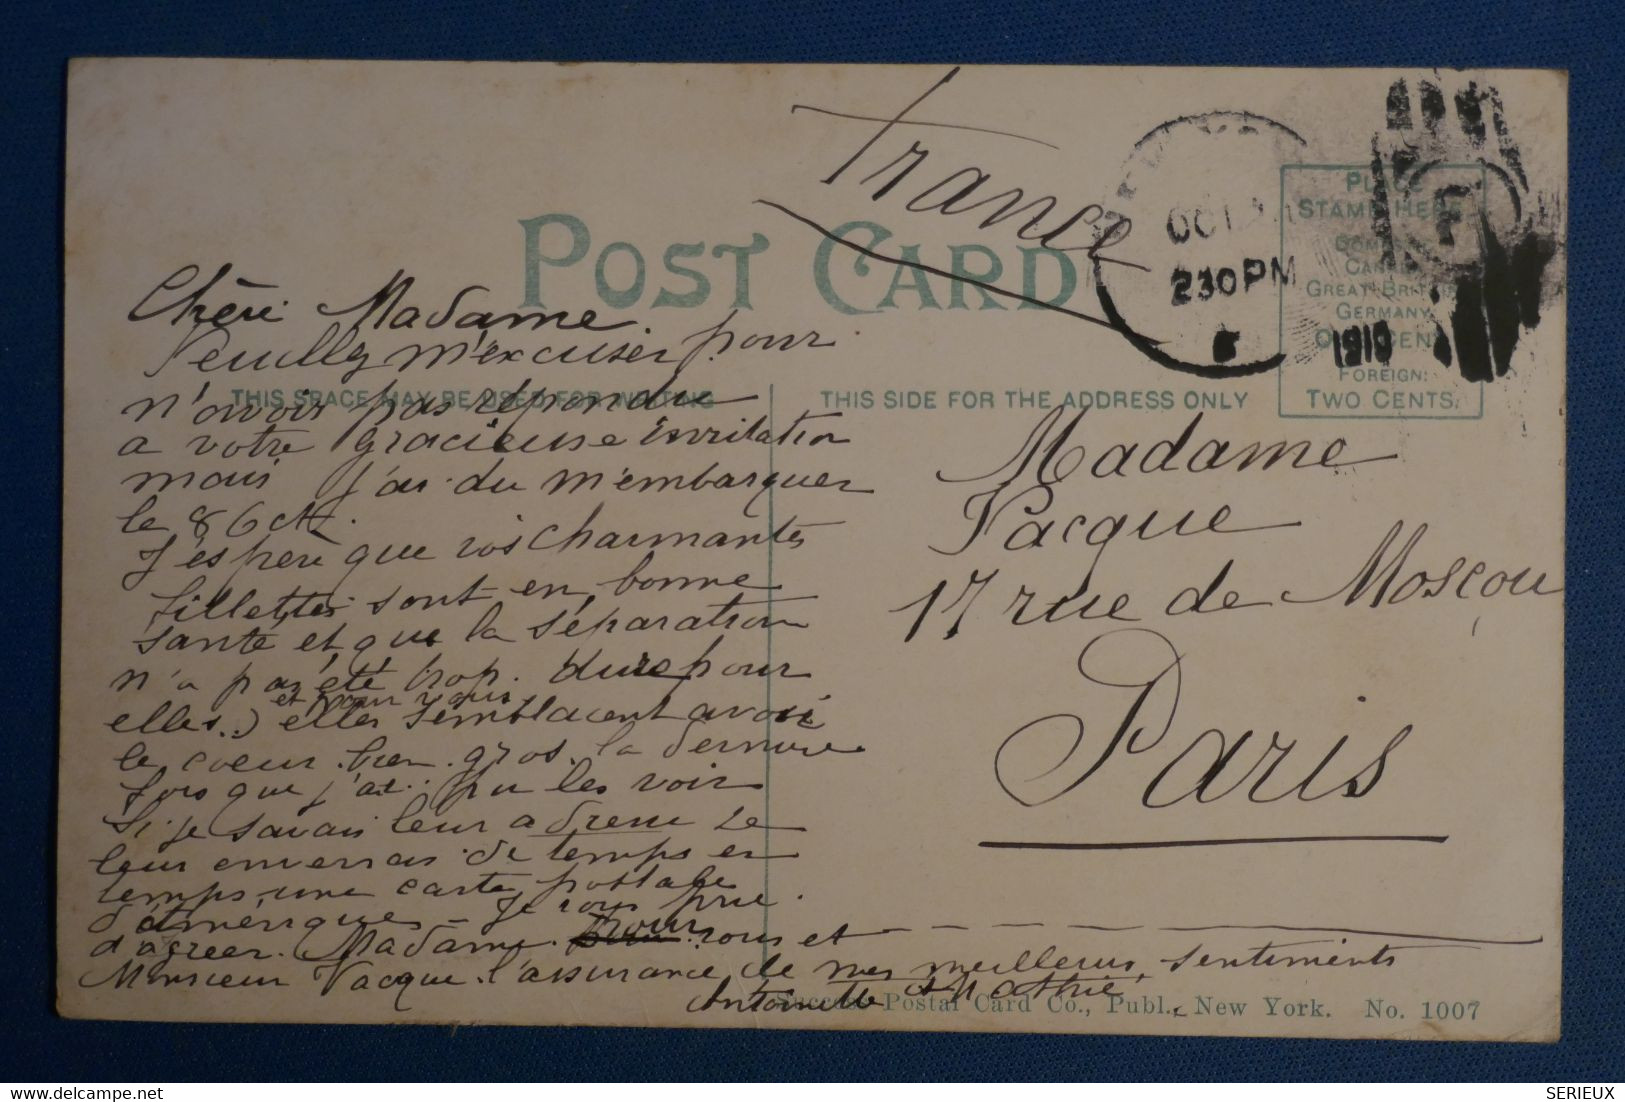 France
POST CARD
OCT
230 PM
1910
PLACE
STAMP HERE
DOMESTIC
CANADA
GREAT BRITAIN
GERMANY
ONE CENT
FOREIGN:
TWO CENTS.
THIS SPACE MAY BE USED FOR WRITING
THIS SIDE FOR THE ADDRESS ONLY
Chère Madame
Veuillez m'excuser pour
n'avoir pas répondu
a votre gracieuse invitation
mais j'ai du m'embarquer
le 8 Oct.
J'espere que vos charmantes
fillettes sont en bonne
santé et que la séparation
n'a pas été trop dure pour
elles et pour vous
elles semblaient avoir
le coeur bien gros la derniere
fois que j'ai pu les voir
Si je savais leur adresse Je
leur enverrais de temps en
temps une carte postale
d'Amérique - Je vous prie
d'agréer Madame pour vous et
Monsieur Vacque l'assurance de mes meilleurs sentiments
Antoinette
Madame
Vacque
17 rue de Moscou
Paris
Success Postal Card Co., Publ., New York. No. 1007
SERIEUX